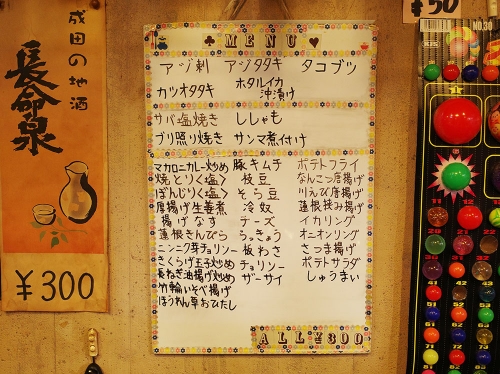 成田の地酒
長命泉
¥300
MENU
アジ刺 アジタタキ タコブツ
カツオタタキ ホタルイカ沖漬け
サバ塩焼き ししゃも
ブリ照り焼き サンマ煮付け
マカロニカレー炒め 豚キムチ ポテトフライ
焼とり〈塩〉 枝豆 なんこつ唐揚げ
ぼんじり〈塩〉 そら豆 川えび唐揚げ
厚揚げ生姜煮 冷奴 蓮根挟み揚げ
揚げなす チーズ イカリング
蓮根きんぴら らっきょう オニオンリング
ニンニク芽チョリソー 板わさ さつま揚げ
きくらげ玉子炒め チョリソー ポテトサラダ
長ねぎ油揚げ炒め ザーサイ しゅうまい
竹輪いそべ揚げ
ほうれん草おひたし
ALL ¥300
¥50
NO.30
11
12
13